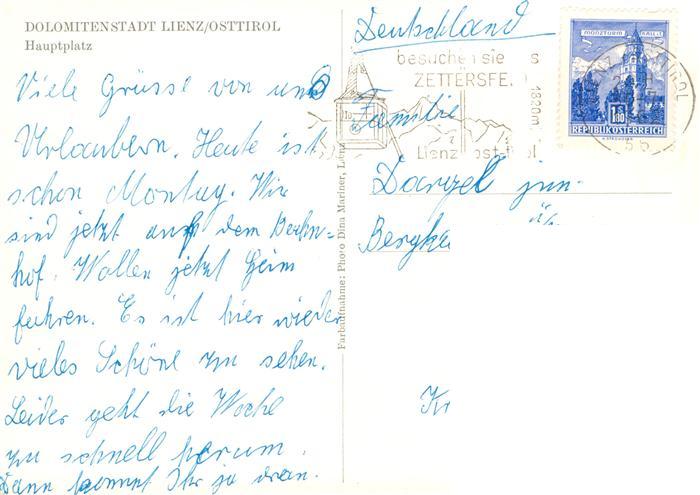 DOLOMITENSTADT LIENZ/OSTTIROL
Hauptplatz
Viele Grüsse von uns
Urlaubern. Heute ist
schon Montag. Wir
sind jetzt auf dem Bahn=
hof. Wollen jetzt heim
fahren. Es ist hier wieder
vieles Schöne zu sehen.
Leider geht die Woche
zu schnell herum.
Dann kommt Ihr ja dran.
Farbaufnahme: Photo Dina Mariner, Lienz
Deutschland
besuchen sie
ZETTERSFE
1820m
Lienz ost-tirol
MÜNZTURM HALL
1.80
REPUBLIK ÖSTERREICH
Familie
jun.
Kr